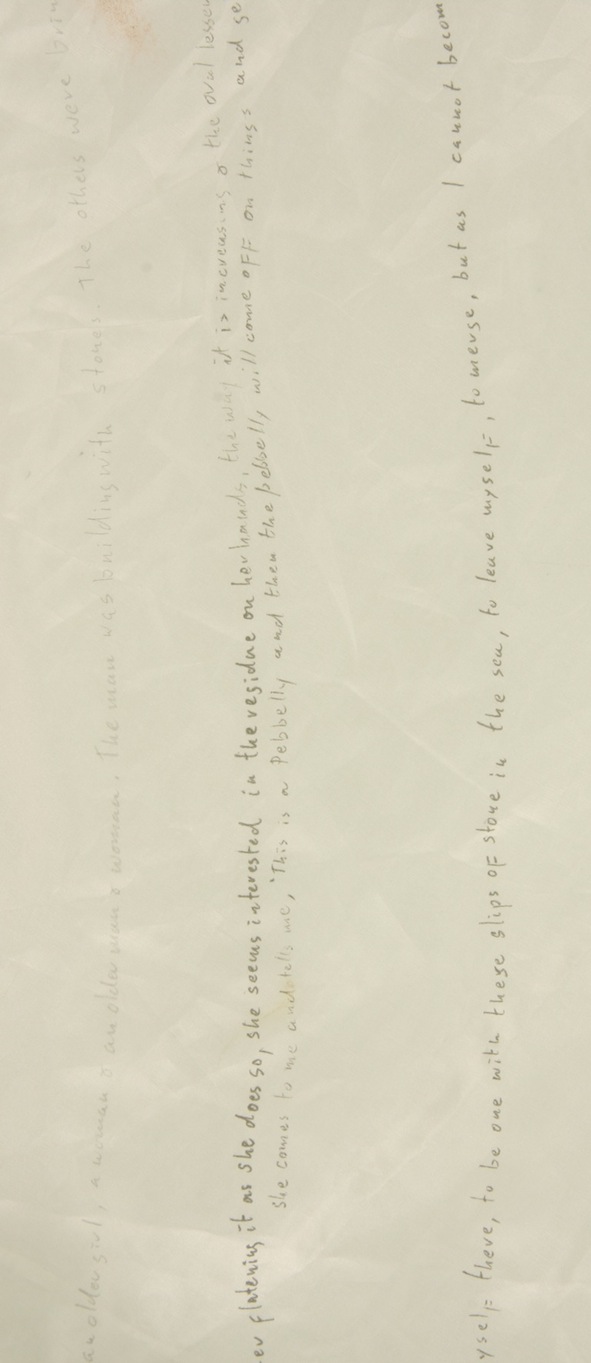 an older girl, a woman & an older man & woman. The man was building with stones. The others were brin
er flatening it as she does so, she seems interested in the residue on her hands, the way it is increasing & the oval lessen
She comes to me and tells me, 'This is a Pebbelly and then the pebbelly will come off on things and se
yself there, to be one with these slips of stone in the sea, to leave myself, to merge, but as I cannot becom